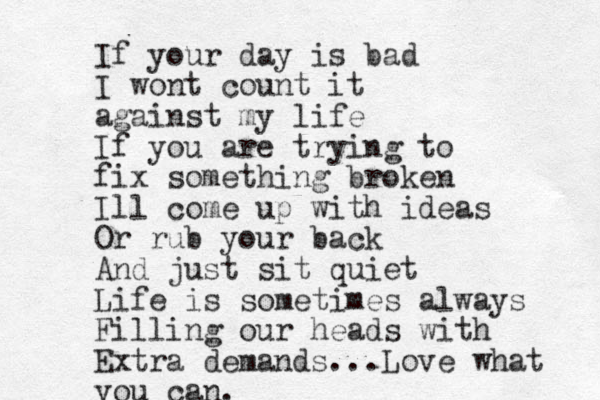 If your day is bad
I wont count it
against my life
If you are trying to
fix something broken
Ill come up with ideas
Or rub your back
And just sit quiet
Life is sometimes always
Filling our heads with
Extra demands...Love what
you can.